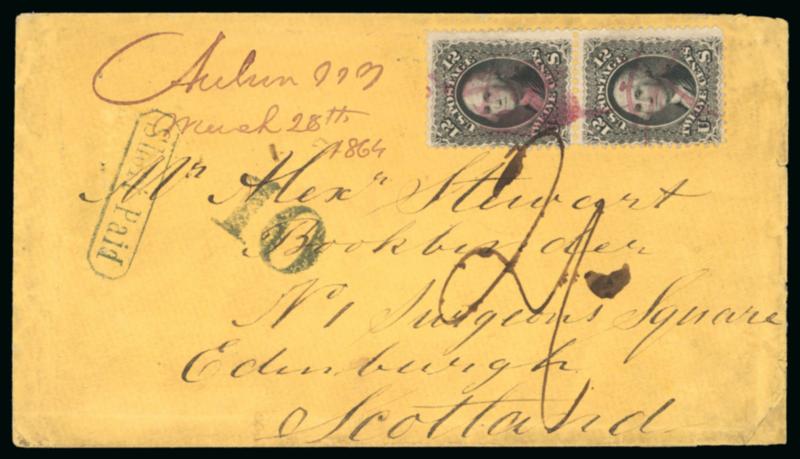 12 U.S. POSTAGE 12
12 U.S. POSTAGE 12
March 28th
1864
Short Paid
10
Mr Alexr Stewart
Bookbinder
No 1 Surgeons Square
Edinburgh
Scotland